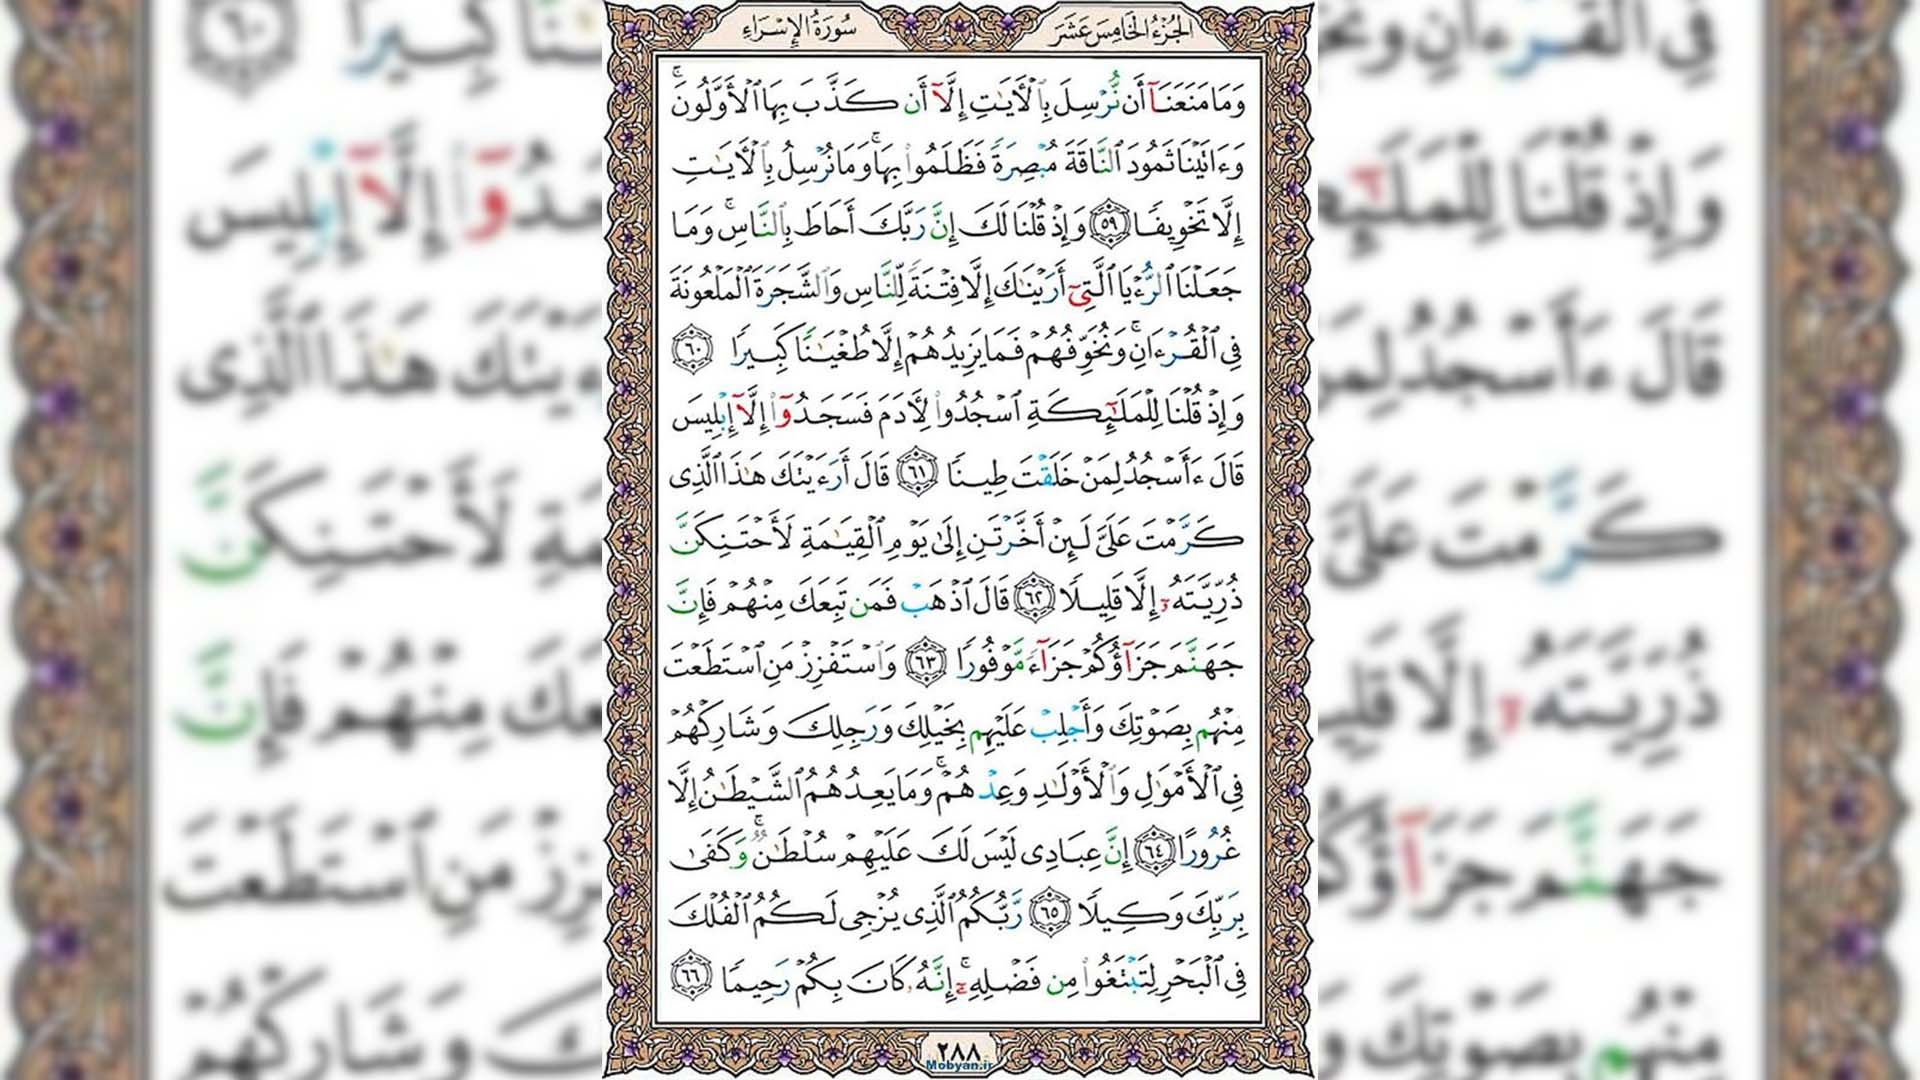 الجُزْءُ الخَامِسَ عَشَرَ
سُورَةُ الإِسْرَاءِ
وَمَا مَنَعَنَآ أَن نُّرْسِلَ بِٱلْأَيَٰتِ إِلَّآ أَن كَذَّبَ بِهَا ٱلْأَوَّلُونَۚ
وَءَاتَيْنَا ثَمُودَ ٱلنَّاقَةَ مُبْصِرَةً فَظَلَمُوا۟ بِهَاۚ وَمَا نُرْسِلُ بِٱلْأَيَٰتِ
إِلَّا تَخْوِيفًا ٥٩ وَإِذْ قُلْنَا لَكَ إِنَّ رَبَّكَ أَحَاطَ بِٱلنَّاسِۚ وَمَا
جَعَلْنَا ٱلرُّءْيَا ٱلَّتِىٓ أَرَيْنَٰكَ إِلَّا فِتْنَةً لِّلنَّاسِ وَٱلشَّجَرَةَ ٱلْمَلْعُونَةَ
فِى ٱلْقُرْءَانِۚ وَنُخَوِّفُهُمْ فَمَا يَزِيدُهُمْ إِلَّا طُغْيَٰنًا كَبِيرًا ٦٠
وَإِذْ قُلْنَا لِلْمَلَٰٓئِكَةِ ٱسْجُدُوا۟ لِأَدَمَ فَسَجَدُوٓا۟ إِلَّآ إِبْلِيسَ
قَالَ ءَأَسْجُدُ لِمَنْ خَلَقْتَ طِينًا ٦١ قَالَ أَرَءَيْتَكَ هَٰذَا ٱلَّذِى
كَرَّمْتَ عَلَىَّ لَئِنْ أَخَّرْتَنِ إِلَىٰ يَوْمِ ٱلْقِيَٰمَةِ لَأَحْتَنِكَنَّ
ذُرِّيَّتَهُۥٓ إِلَّا قَلِيلًا ٦٢ قَالَ ٱذْهَبْ فَمَن تَبِعَكَ مِنْهُمْ فَإِنَّ
جَهَنَّمَ جَزَآؤُكُمْ جَزَآءً مَّوْفُورًا ٦٣ وَٱسْتَفْزِزْ مَنِ ٱسْتَطَعْتَ
مِنْهُم بِصَوْتِكَ وَأَجْلِبْ عَلَيْهِم بِخَيْلِكَ وَرَجِلِكَ وَشَارِكْهُمْ
فِى ٱلْأَمْوَٰلِ وَٱلْأَوْلَٰدِ وَعِدْهُمْۚ وَمَا يَعِدُهُمُ ٱلشَّيْطَٰنُ إِلَّا
غُرُورًا ٦٤ إِنَّ عِبَادِى لَيْسَ لَكَ عَلَيْهِمْ سُلْطَٰنٌۚ وَكَفَىٰ
بِرَبِّكَ وَكِيلًا ٦٥ رَّبُّكُمُ ٱلَّذِى يُزْجِى لَكُمُ ٱلْفُلْكَ
فِى ٱلْبَحْرِ لِتَبْتَغُوا۟ مِن فَضْلِهِۦٓۚ إِنَّهُۥ كَانَ بِكُمْ رَحِيمًا ٦٦
٢٨٨
Mobyan.ir